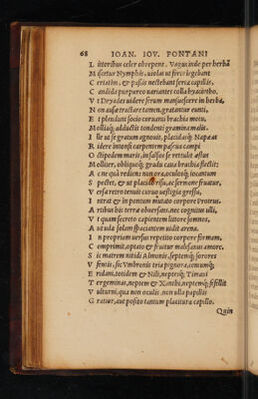 68 IOAN. IOV. PONTANI
L ittoribus celer obrepent. Vagus inde per herbã
M iscetur Nymphis, violas ut forte legebant
C rinibus, & passis nectebant serta capillis,
C andida purpureo variantes colla hyacintho.
V t Dryades uidere ferum mansuescere in herba,
N en ausæ tractare tamen, gratantur eunti,
E t plendunt socio coruanti brachia motu,
M ollia; adductis tondenti gramina malis.
I lle ut se gratum agnouit, placidasq; Napæas
R idere intentas carpentem pascua campi
O ctipedem maris, in salsos se retulit æstus
M ollior, obliquoq; gradu caua brachia flectit.
A c ne quà rediens oculosq; iocantum
S pectet, & ut risu, ac sermone fruatur,
V ersa retro tenuit curuo uestigia gressu,
I ntrat & in pontum mutato corpore
A ribus bis terra obuersans, nec cognitus ulli,
V t quam secreto capientem littore somnos,
A ut uda solam spaciantem uidit arena.
I n propriam uersus repetito corpore formam,
C omprimit, optato & fruitur malesanus amore.
S ic matrem nitidi Almonis, septemq; sorores
V fentis, sic Vmbronis tria pignora,
E ridani, totidem & Nili, neptisq; Timaui
T ergeminas, neptem & Xanthi, neptemq; fefellit
V ulturni, qua non oculis, non ulla papillis
G ratior, aut posito tantum placitura capillo.
Quin